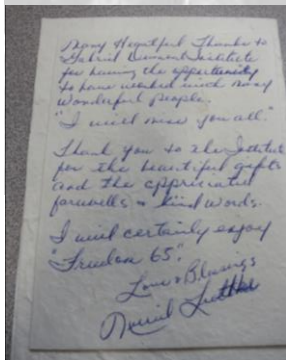 Many Heartful Thanks to
Gabriel Dumont Institute
for having the opportunity
to have worked with many
Wonderful People.
"I will miss you all."
Thank you to the Institute
for the beautiful gifts
and the appreciated
farewells & kind words.
I will certainly enjoy
"Freedom 65".
Love & Blessings